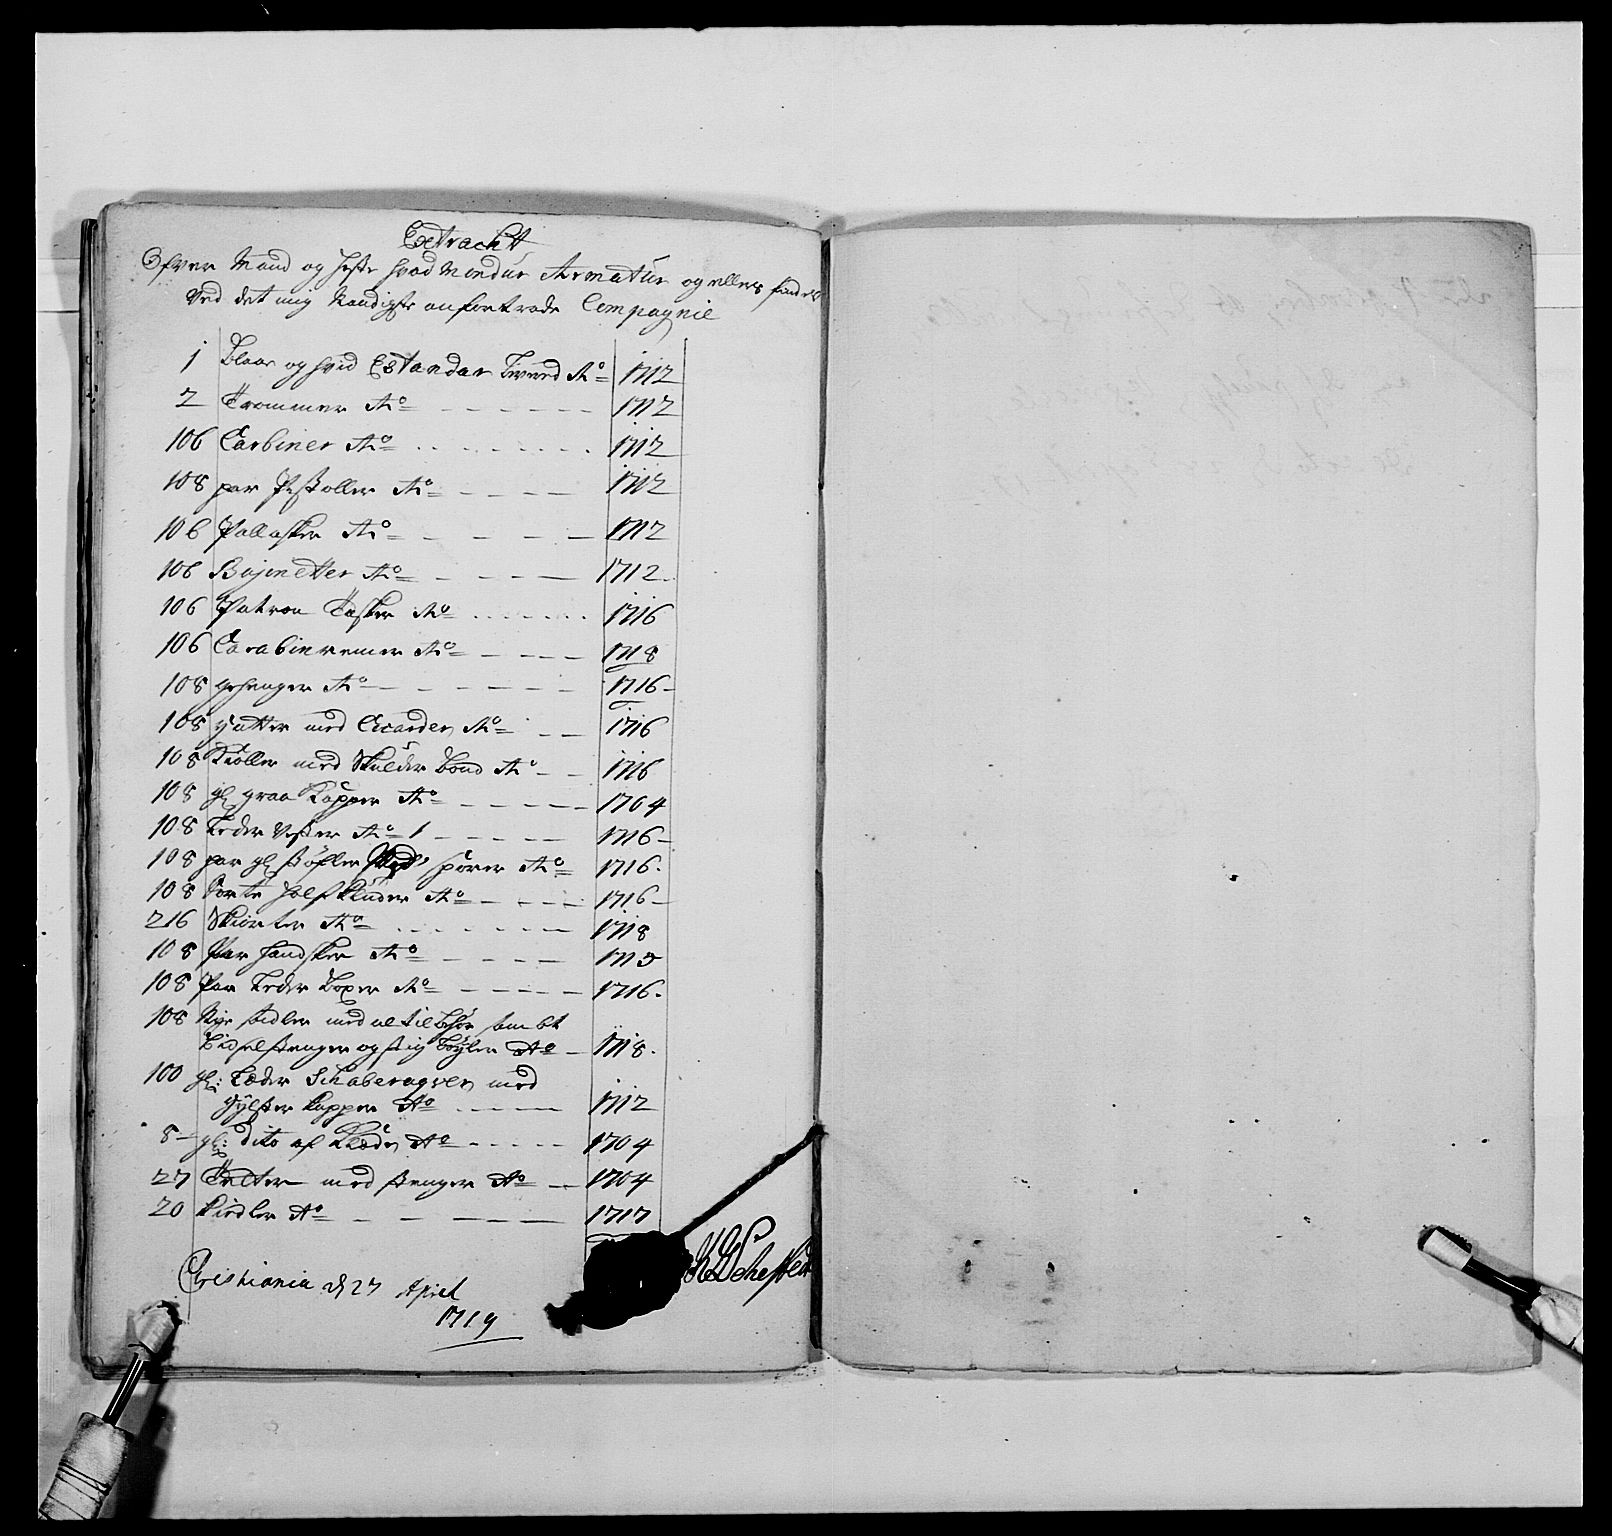 Extracht
Ofver Mand og heste hvad Mundur Armatur og ellers findes
Ved det mig Naadigste anfortrode Compagnie
1 blaae og hvid Estandar lewerd Aō 1712
2 Trommer Aō 1712
106 Carbiner Aō 1712
108 par Pistoller Aō 1712
106 Pallasker Aō 1712
106 Bajonetter Aō 1712
106 Patron Tasker Aō 1716
106 Carabinremer Aō 1718
108 gehenger Aō 1716
108 hatter med Cicarder Aō 1716
108 Kioller med Skulder bond Aō 1716
108 gl graa Kapper Aō 1704
108 leder Vester Aō 1 1716
108 par gl støfler Med sporer Aō 1716
108 Sorte halskluder Aō 1716
216 Skiorter Aō 1718
108 Par handsker Aō
108 Par leder boxer Aō 1716
108 Nye sadler med al tilbehør sambt
bidselstenger og stig bøyler Aō 1718
100 gl: Læder Schaberaqver med
hylster kapper Aō 1712
8 gl: dito af klæde Aō 1704
27 Telter med stenger Aō 1704
20 kiedler Aō 1717
Christiania d 27 April
1719